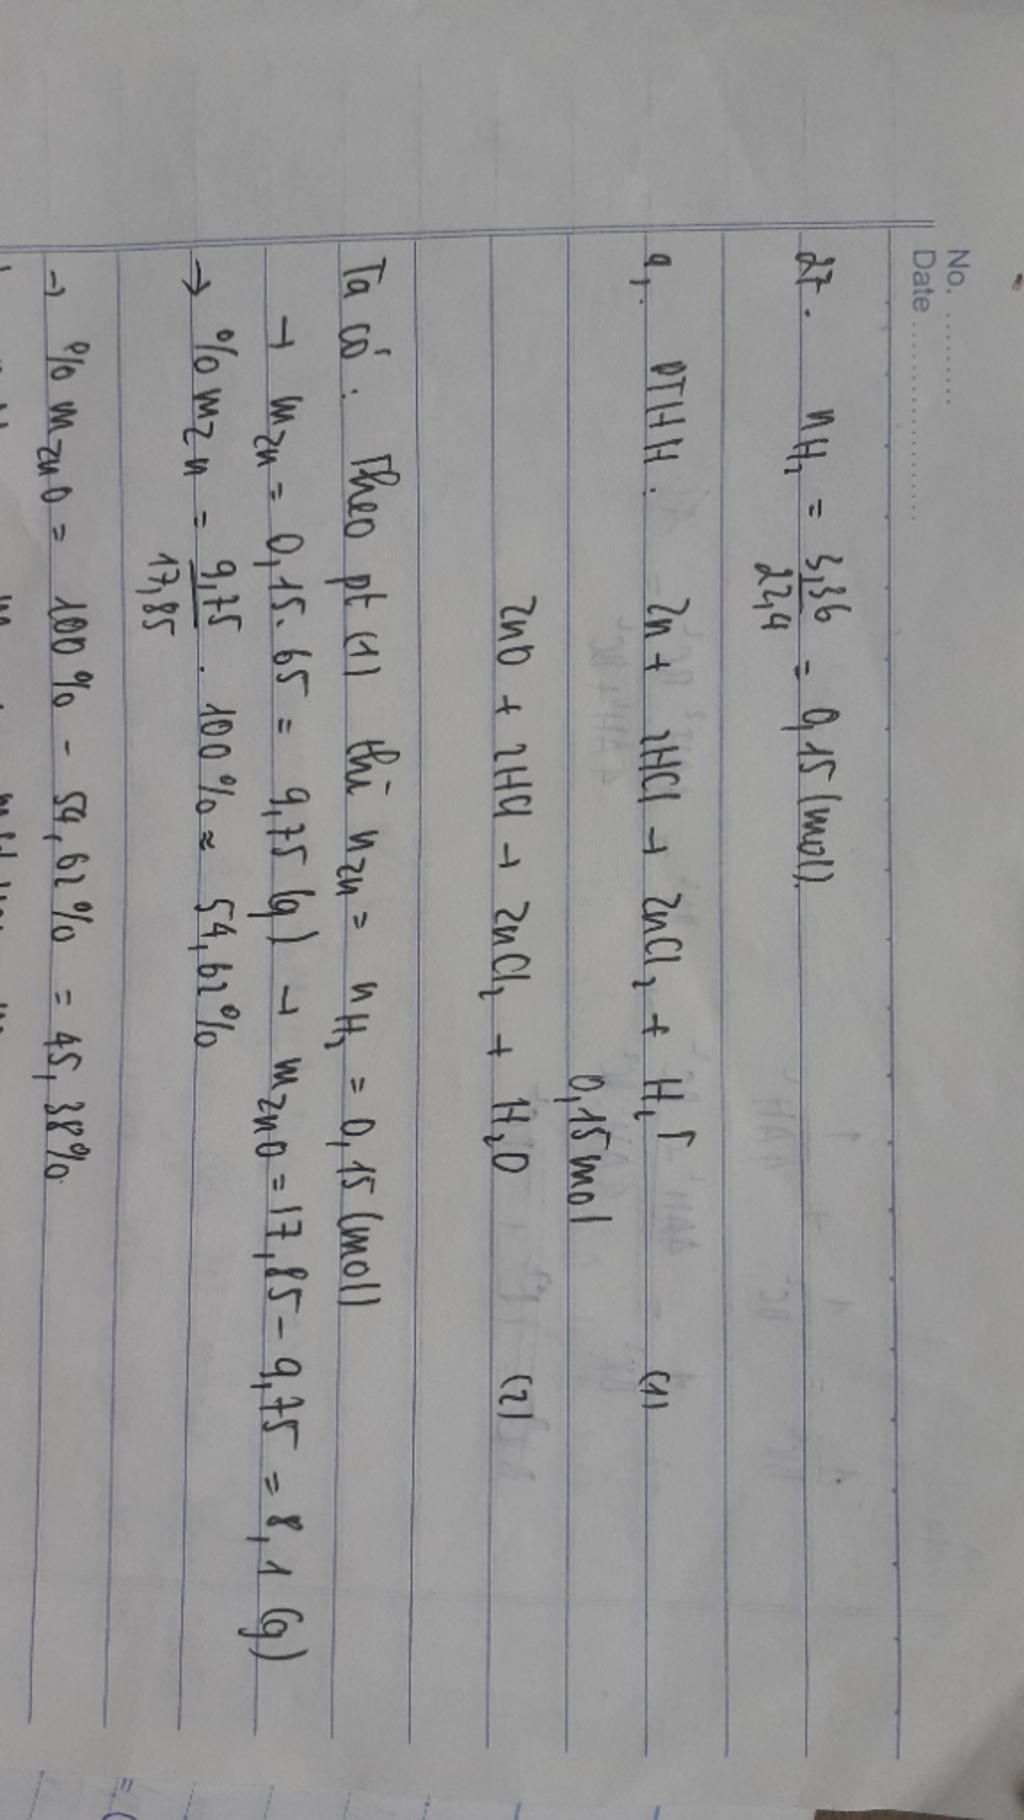 No. ..........
Date ....................
27. nH₂ = 3,36/22,4 = 0,15 (mol)
a, PTHH: Zn + 2HCl → ZnCl₂ + H₂↑ (1)
0,15 mol
ZnO + 2HCl → ZnCl₂ + H₂O (2)
Ta có: Theo pt (1) thì nZn = nH₂ = 0,15 (mol)
→ mZn = 0,15.65 = 9,75 (g) → mZnO = 17,85 - 9,75 = 8,1 (g)
→ %mZn = 9,75/17,85 . 100% ≈ 54,62%
→ %mZnO = 100% - 54,62% = 45,38%